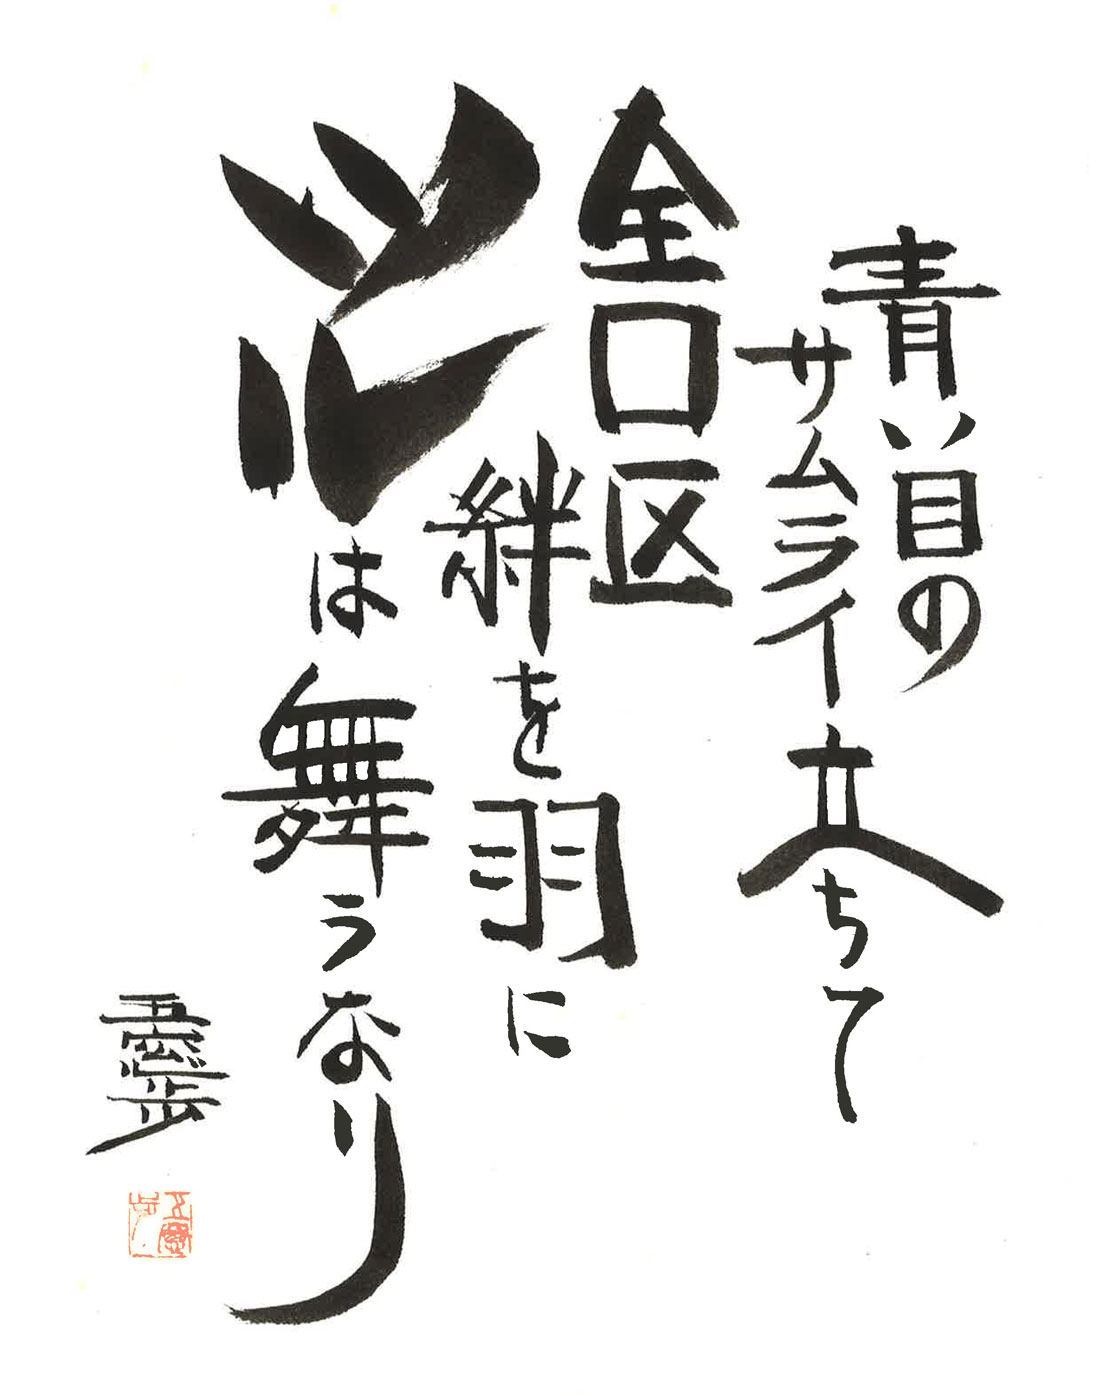 青い目の
サムライ立ちて
全口区
絆を羽に
ツルは舞うなり